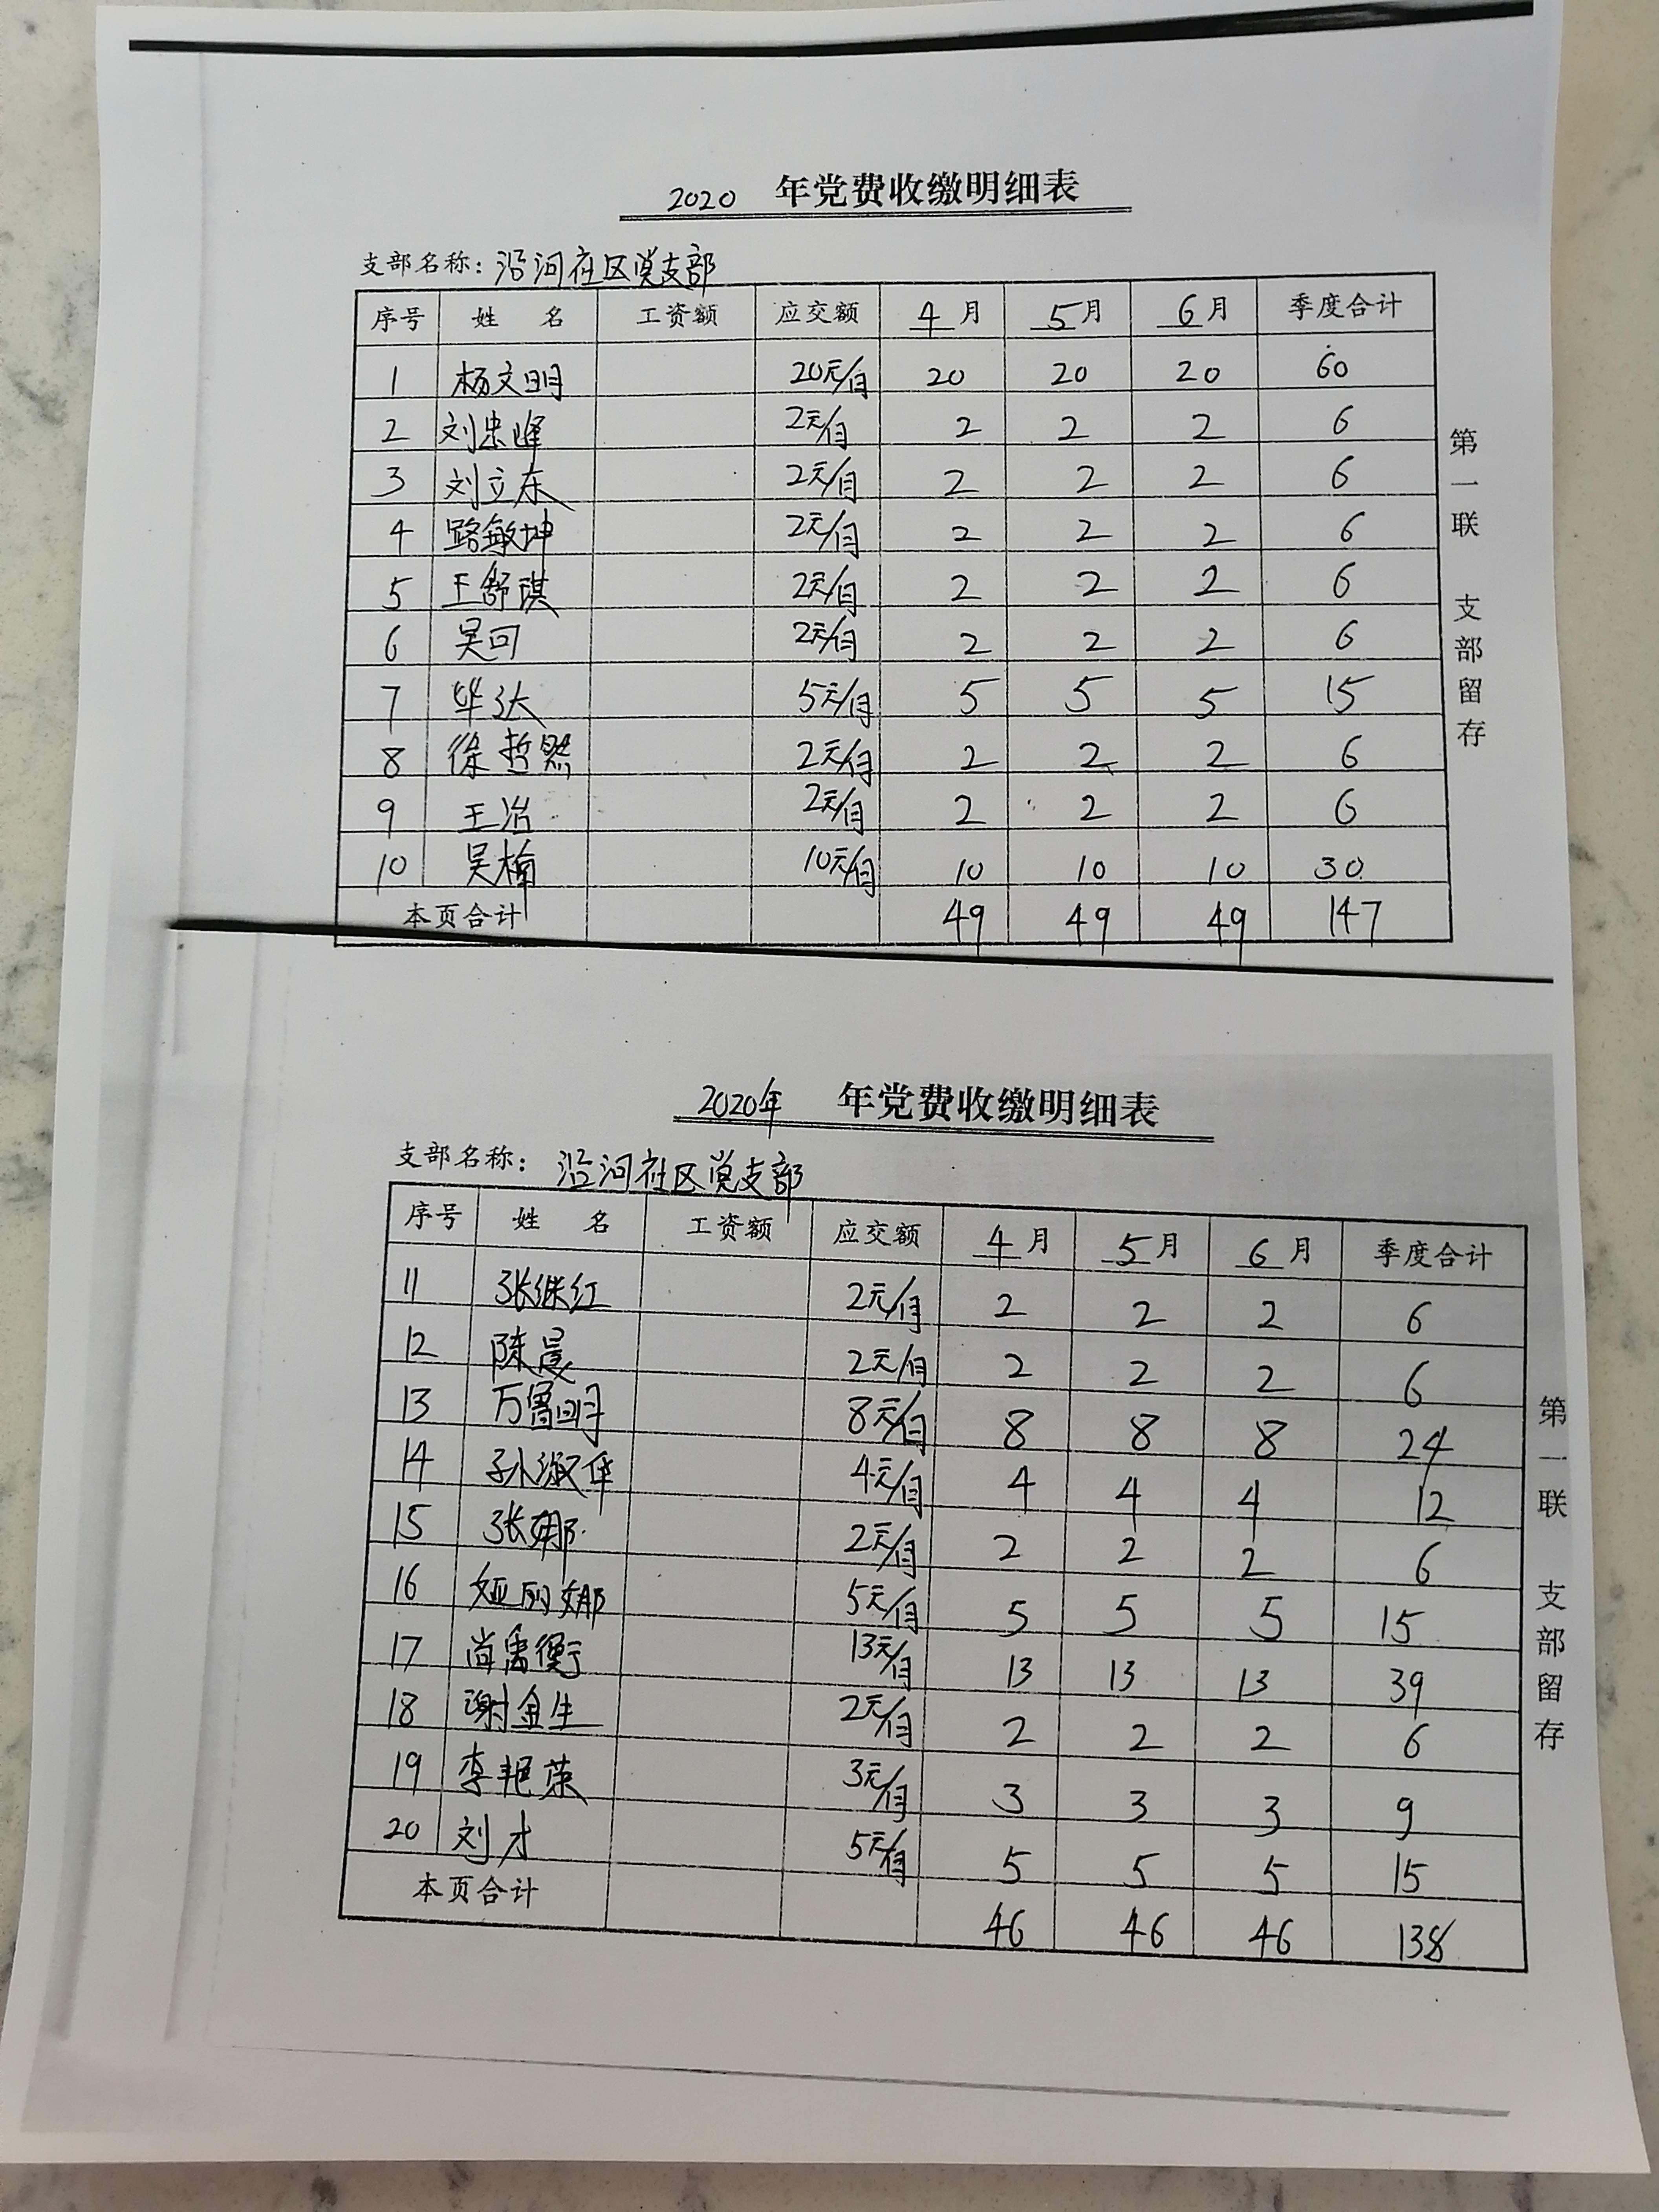 2020 年党费收缴明细表
支部名称：沿河社区党支部
序号 姓名 工资额 应交额 4月 5月 6月 季度合计
1 杨文明 20元/月 20 20 20 60
2 刘忠峰 2元/月 2 2 2 6
3 刘立东 2元/月 2 2 2 6
4 路敏坤 2元/月 2 2 2 6
5 王舒琪 2元/月 2 2 2 6
6 吴可 2元/月 2 2 2 6
7 华弘 5元/月 5 5 5 15
8 徐哲然 2元/月 2 2 2 6
9 王冶 2元/月 2 2 2 6
10 吴楠 10元/月 10 10 10 30
本页合计 49 49 49 147
第一联 支部留存
2020年 年党费收缴明细表
支部名称：沿河社区党支部
序号 姓名 工资额 应交额 4月 5月 6月 季度合计
11 张继红 2元/月 2 2 2 6
12 陈晨 2元/月 2 2 2 6
13 万鲁明 8元/月 8 8 8 24
14 孙淑华 4元/月 4 4 4 12
15 张娜 2元/月 2 2 2 6
16 娅丽娜 5元/月 5 5 5 15
17 尚禹衡 13元/月 13 13 13 39
18 谢金生 2元/月 2 2 2 6
19 李艳荣 3元/月 3 3 3 9
20 刘才 5元/月 5 5 5 15
本页合计 46 46 46 138
第一联 支部留存